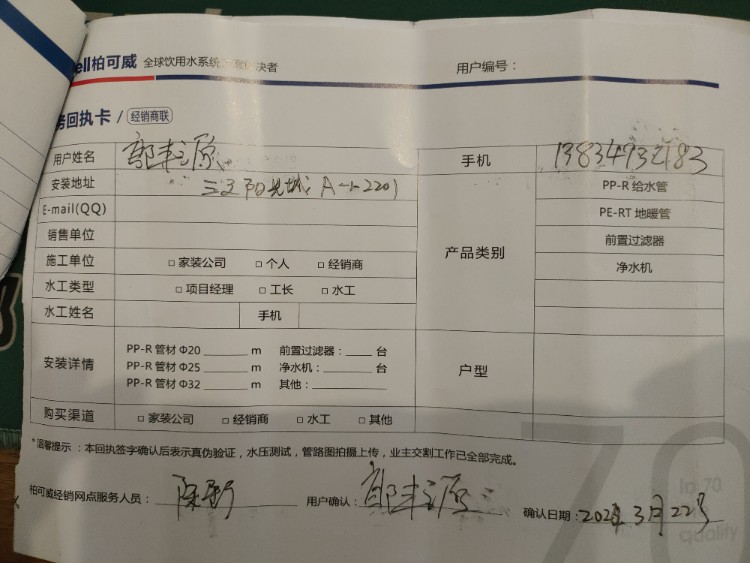 ell柏可威 全球饮用水系统 决者 用户编号：
务回执卡 / 经销商联
用户姓名 手机 13834932183
安装地址 A-1-2201 PP-R 给水管
E-mail(QQ) PE-RT 地暖管
销售单位 产品类别 前置过滤器
施工单位 □ 家装公司 □ 个人 □ 经销商 净水机
水工类型 □ 项目经理 □ 工长 □ 水工
水工姓名 手机
安装详情 户型
PP-R 管材 Φ20 ______ m 前置过滤器：____ 台
PP-R 管材 Φ25 ______ m 净水机：______ 台
PP-R 管材 Φ32 ______ m 其他：________
购买渠道 □ 家装公司 □ 经销商 □ 水工 □ 其他
*温馨提示：本回执签字确认后表示真伪验证，水压测试，管路图拍摄上传，业主交割工作已全部完成。
柏可威经销网点服务人员： 用户确认： 确认日期： 3月22号
70
In 70
quality